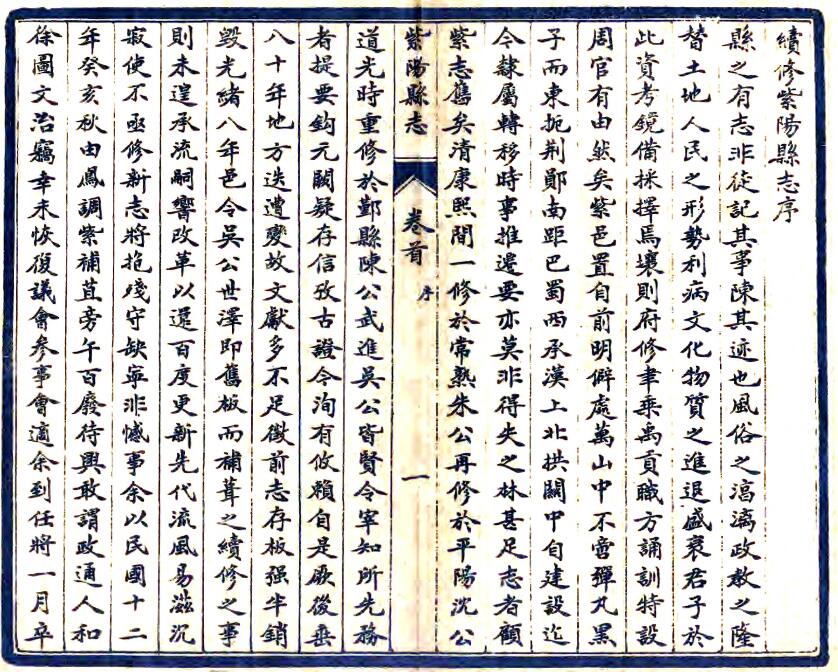 續修紫陽縣志序
縣之有志非徒記其事陳其迹也風俗之漓漓政教之隆
替土地人民之形勢利病文化物質之進退盛衰君子於
此資考鏡備採擇焉壤則府修聿乘禹貢職方誦訓特設
周官有由然矣紫邑置自前明僻處萬山中不啻彈丸黑
子而東扼荆鄖南距巴蜀西承漢上北拱關中自建設迄
今隸屬轉移時事推遷要亦莫非得失之林甚足志者顧
紫志舊矣清康熙間一修於常熟朱公再修於平陽沈公
紫陽縣志 卷首 序 一
道光時重修於鄞縣陳公武進吳公皆賢令宰知所先務
者提要鈎元闕疑存信攷古證今洵有攸賴自是厥後垂
八十年地方迭遭變故文獻多不足徵前志存板强半銷
毀光緒八年邑令吳公世澤即舊板而補葺之續修之事
則未遑承流嗣響改革以還百度更新先代流風易滋沉
寂使不亟修新志將抱殘守缺寧非憾事余以民國十二
年癸亥秋由鳳調紫補苴旁午百廢待興敢謂政通人和
徐圖文治竊幸未恢復議會參事會適余到任將一月卒